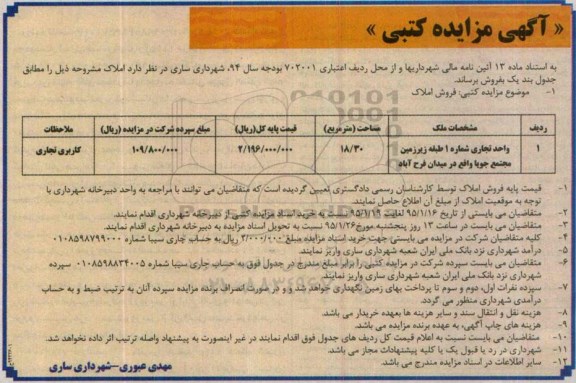 « آگهی مزایده کتبی »
به استناد ماده ۱۳ آئین نامه مالی شهرداریها و از محل ردیف اعتباری ۷۰۲۰۰۱ بودجه سال ۹۴، شهرداری ساری در نظر دارد املاک مشروحه ذیل را مطابق
جدول بند یک بفروش برساند.
۱- موضوع مزایده کتبی: فروش املاک
ردیف مشخصات ملک مساحت (مترمربع) قیمت پایه کل(ریال) مبلغ سپرده شرکت در مزایده (ریال) ملاحظات
۱ واحد تجاری شماره ۱ طبقه زیرزمین ۱۸/۳۰ ۲/۱۹۶/۰۰۰/۰۰۰ ۱۰۹/۸۰۰/۰۰۰ کاربری تجاری
مجتمع جویا واقع در میدان فرح آباد
۱- قیمت پایه فروش املاک توسط کارشناسان رسمی دادگستری تعیین گردیده است که متقاضیان می توانند با مراجعه به واحد دبیرخانه شهرداری با
توجه به موقعیت املاک از مبلغ آن اطلاع حاصل نمایند.
۲- متقاضیان می بایستی از تاریخ ۹۵/۱/۱۶ لغایت ۹۵/۱/۱۹ نسبت به خرید اسناد مزایده کتبی از دبیرخانه شهرداری اقدام نمایند.
۳- متقاضیان می بایست در ساعت ۱۳ روز پنجشنبه مورخ ۹۵/۱/۲۶ نسبت به تحویل اسناد مزایده به دبیرخانه شهرداری اقدام نمایند.
۴- کلیه متقاضیان شرکت در مزایده می بایستی جهت خرید اسناد مزایده مبلغ ۳/۰۰۰/۰۰۰ ریال به حساب جاری سیبا شماره ۰۱۰۸۵۹۸۷۹۹۰۰۰
۵- درآمد شهرداری نزد بانک ملی ایران شعبه شهرداری ساری واریز نمایند.
۶- متقاضیان می بایست سپرده شرکت در مزایده کتبی را برابر مبلغ مندرج در جدول فوق به حساب جاری سیبا شماره ۰۱۰۸۵۹۸۸۳۴۰۰۵ سپرده
شهرداری نزد بانک ملی ایران شعبه شهرداری ساری واریز نمایند.
۷- سپرده نفرات اول، دوم و سوم تا پرداخت بهای زمین نگهداری خواهد شد و در صورت انصراف برنده مزایده سپرده آنان به ترتیب ضبط و به حساب
درآمدی شهرداری منظور می گردد.
۸- هزینه نقل و انتقال سند و سایر هزینه ها بعهده خریدار می باشد.
۹- هزینه های چاپ آگهی، به عهده برنده مزایده می باشد.
۱۰- متقاضیان می بایست نسبت به اعلام قیمت کل ردیف های جدول فوق اقدام نمایند در غیر اینصورت به پیشنهاد واصله ترتیب اثر داده نخواهد شد.
۱۱- شهرداری در رد یا قبول یک یا کلیه پیشنهادات مجاز می باشد.
۱۲- سایر اطلاعات در اسناد مزایده مندرج می باشد.
مهدی عبوری-شهرداری ساری